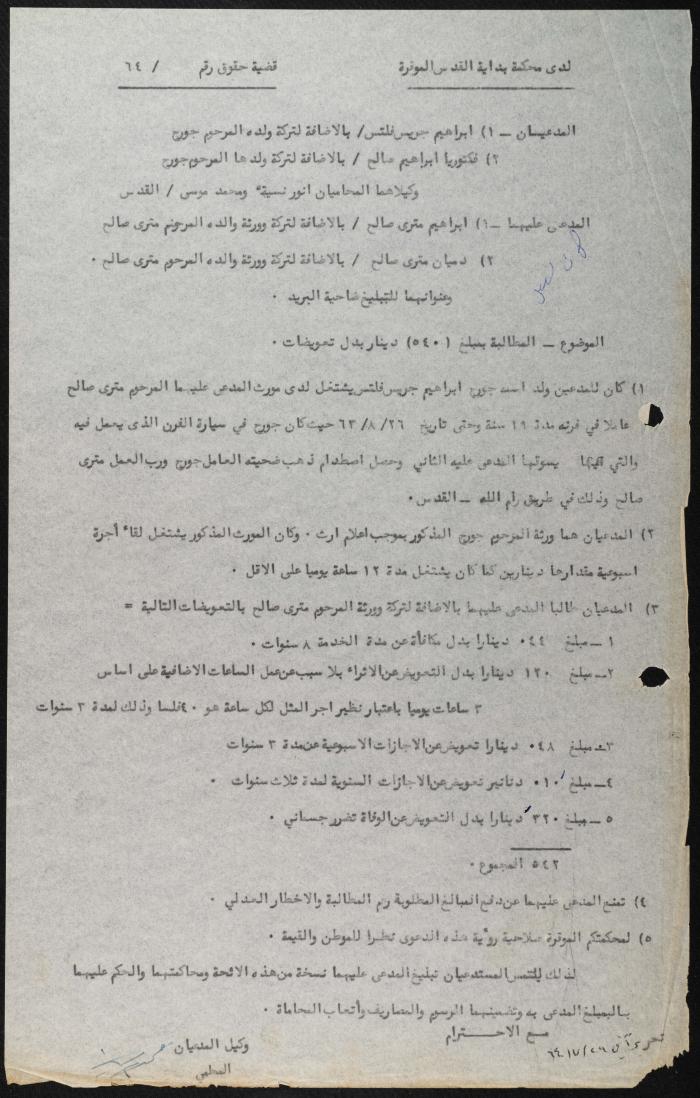 لدى محكمة بداية القدس الموقرة
قضية حقوق رقم / ٦٤
المدعيان ــ ١) ابراهيم جريس فلتس/ بالاضافة لتركة ولده المرحوم جورج
٢) فكتوريا ابراهيم صالح / بالاضافة لتركة ولدها المرحوم جورج
وكيلاهما المحاميان انور نسيبة ومحمد موسى / القدس
المدعى عليهما ــ ١) ابراهيم مترى صالح / بالاضافة لتركة وورثة والده المرحوم مترى صالح
٢) دميان مترى صالح / بالاضافة لتركة وورثة والده المرحوم مترى صالح ٠
وعنوانهما للتبليغ ضاحية البريد ٠
الموضوع ــ المطالبة بمبلغ (٥٤٠) دينار بدل تعويضات ٠
١) كان للمدعين ولد اسمه جورج ابراهيم جريس فلتس يشتغل لدى مورث المدعى عليهما المرحوم مترى صالح
عاملا في فرنه مدة ١٩ سنة وحتى تاريخ ٦٣/٨/٢٦ حيث كان جورج في سيارة الفرن الذى يعمل فيه
والتي يسوقها المدعى عليه الثاني وحصل اصطدام ذهب ضحيته العامل جورج ورب العمل مترى
صالح وذلك في طريق رام الله ــ القدس ٠
٢) المدعيان هما ورثة المرحوم جورج المذكور بموجب اعلام ارث ٠ وكان المورث المذكور يشتغل لقاء أجرة
اسبوعية مقدارها دينارين كما كان يشتغل مدة ١٢ ساعة يوميا على الاقل ٠
٣) المدعيان طالبا المدعى عليهما بالاضافة لتركة وورثة المرحوم مترى صالح بالتعويضات التالية =
١ ــ مبلغ ٠٤٤ دينارا بدل مكافأة عن مدة الخدمة ٨ سنوات ٠
٢ــ مبلغ ١٢٠ دينارا بدل التعويض عن الاثراء بلا سبب عن عمل الساعات الاضافية على اساس
٣ ساعات يوميا باعتبار نظير اجر المثل لكل ساعة هو ٤٠ فلسا وذلك لمدة ٣ سنوات
٣ــ مبلغ ٠٤٨ دينارا تعويض عن الاجازات الاسبوعية عن مدة ٣ سنوات
٤ــ مبلغ ٠١٠ دنانير تعويض عن الاجازات السنوية لمدة ثلاث سنوات ٠
٥ ــ مبلغ ٣٢٠ دينارا بدل التعويض عن الوفاة تضرر جسماني ٠
٥٤٢ المجموع ٠
٤) تمنع المدعى عليهما عن دفع المبالغ المطلوبة رغم المطالبة والاخطار العدلي ٠
٥) لمحكمتكم الموقرة صلاحية رؤية هذه الدعوى نظرا للموطن والقيمة ٠
لذلك يلتمس المستدعيان تبليغ المدعى عليهما نسخة من هذه الائحة ومحاكمتهما والحكم عليهما
بالمبلغ المدعى به وتضمينهما الرسوم والمصاريف وأتعاب المحاماة ٠
مع الاحترام
وكيل المدعيان
المحامي